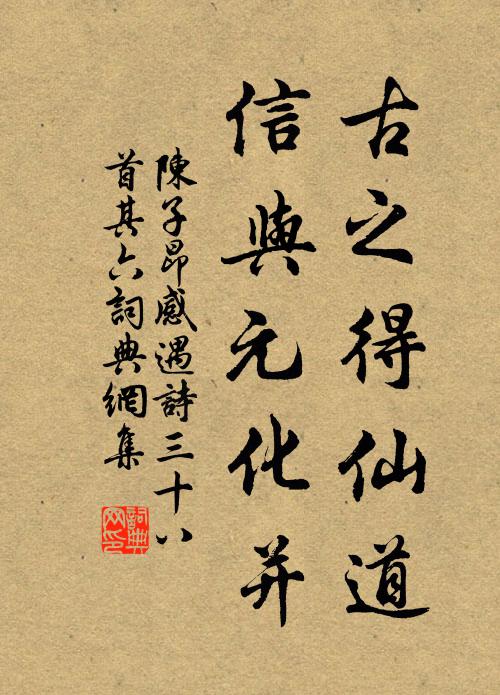 古之得仙道
信與元化并
陳子昂感遇詩三十八
首其六詞典網集
詞典
网印